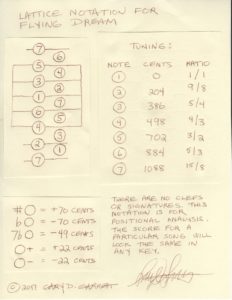 LATTICE NOTATION FOR
FLYING DREAM
7
6
5
4
3
2
1
7
6
5
4
3
2
1
7
TUNING:
NOTE CENTS RATIO
1 0 1/1
2 204 9/8
3 386 5/4
4 498 4/3
5 702 3/2
6 884 5/3
7 1088 15/8
#O = +70 CENTS
bO = -70 CENTS
7bO = -49 CENTS
O+ = +22 CENTS
O- = -22 CENTS
THERE ARE NO CLEFS
OR SIGNATURES. THIS
NOTATION IS FOR
POSITIONAL ANALYSIS.
THE SCORE FOR A
PARTICULAR SONG WILL
LOOK THE SAME IN
ANY KEY.
© 2017 GARY D.